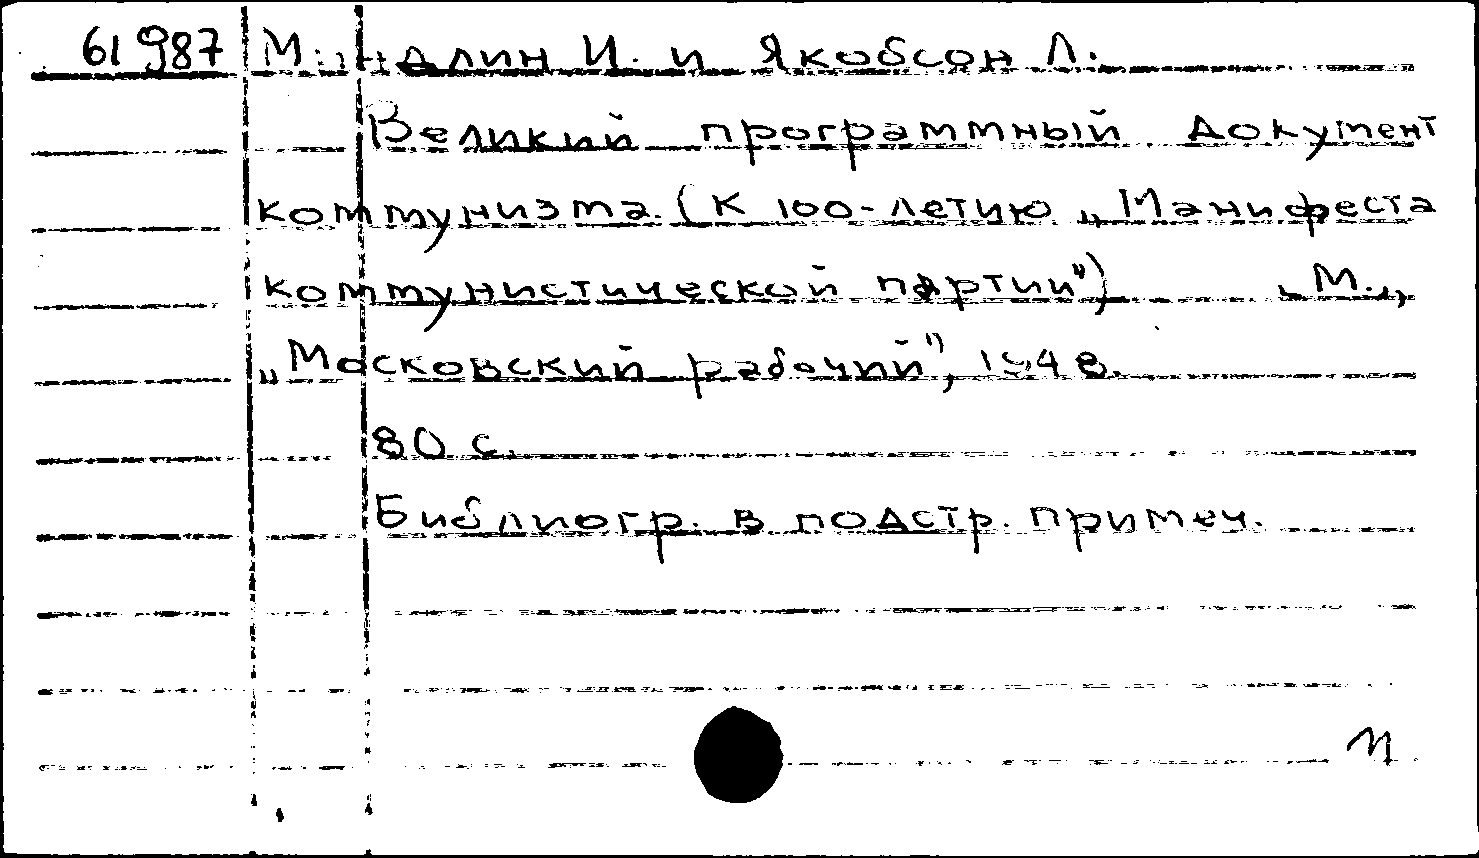 61 987 Миндлин И. и Якобсон Л.
Великий программный документ
коммунизма. (К 100-летию „Манифеста
коммунистической партии") М.,
„Московский рабочий", 1948.
80 с.
Библиогр. в подстр. примеч.